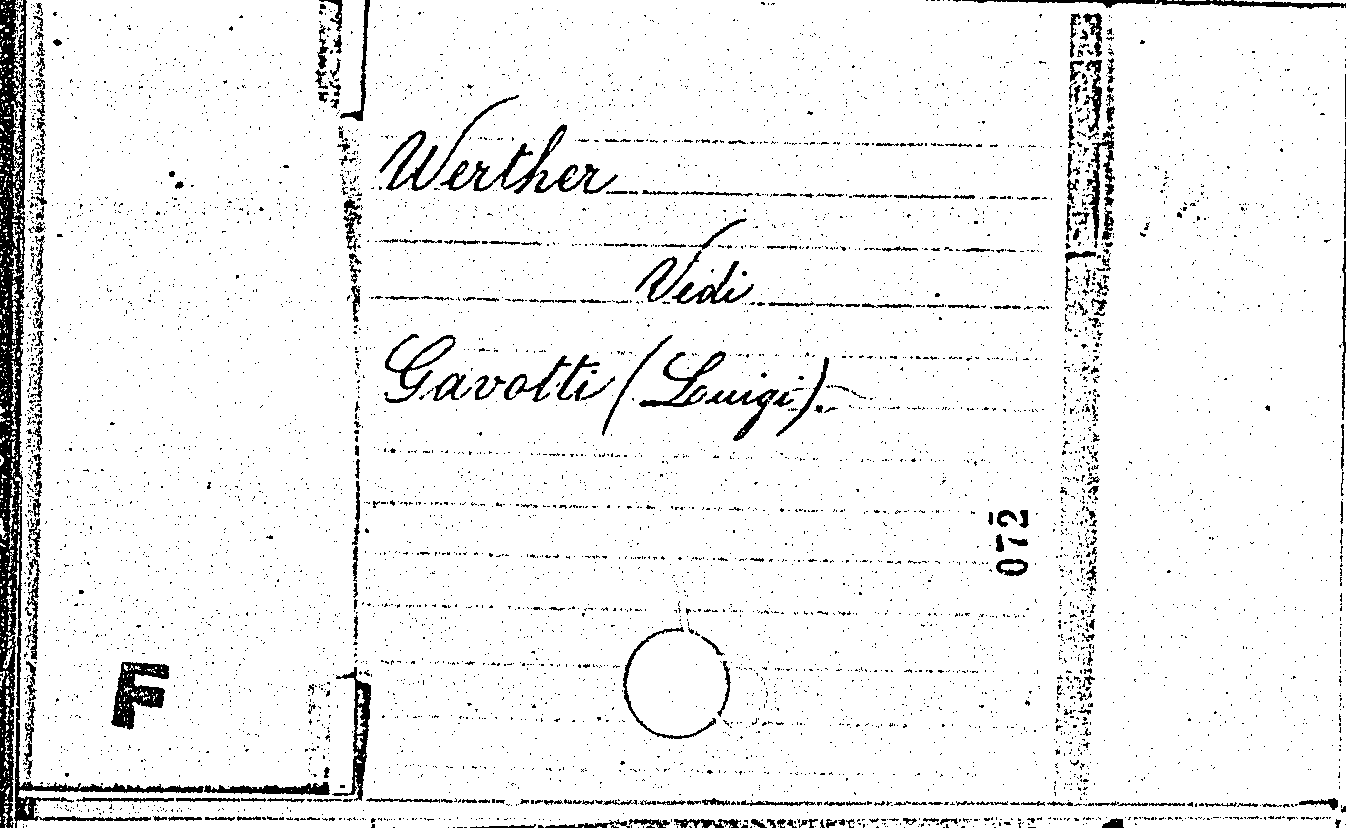 Werther
Vidi
Gavotti (Luigi).
072
F